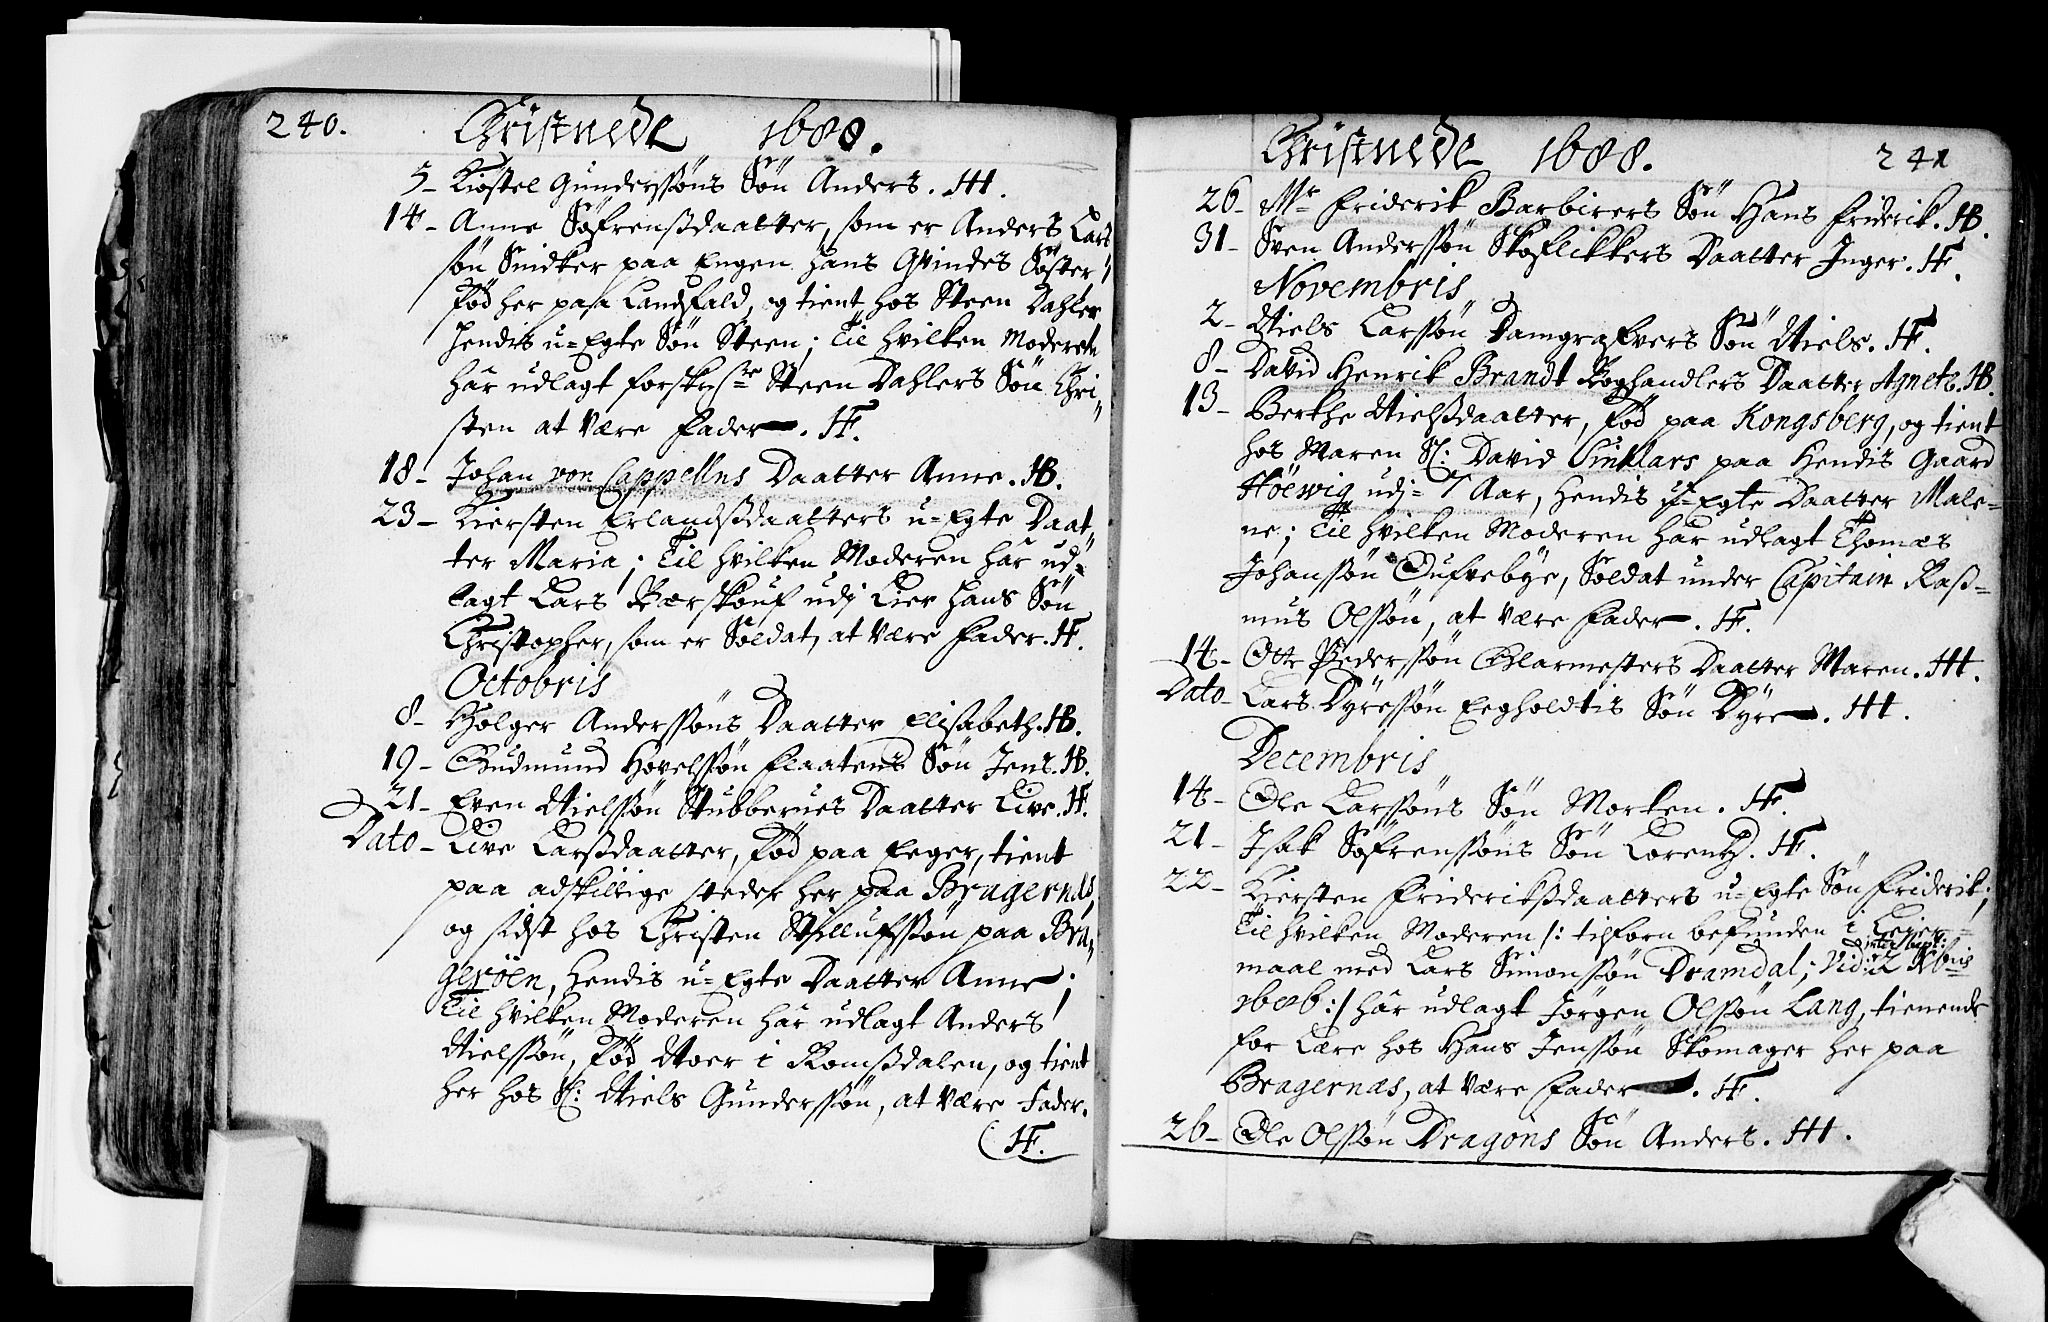 240. Christnede 1688.
5 - Kiøstel Gunderssøns Søn Anders. HH.
14 - Anne Søfrensdaatter, som er Anders Lars
søn Snidker paa Engen hans Qvindes Søster,
Fød her paa Landfald, og tient hos Steen Dahler
hendis u-Egte Søn Steen; Til hvilken Moderen
har udlagt Steen Dahlers Søn Chri„
sten at være Fader. HF.
18 - Johan von Cappellns Daatter Anne. HB.
23 - Kiersten Erlandsdaatters u-Egte Daat„
ter Maria; Til hvilken Moderen har ud-
lagt Lars Bærskouf udj Lier hans Søn
Christopher, som er Soldat, at være Fader. HF.
Octobris
8 - Holger Anderssøns Daatter Elisabeth. HB.
19 - Gudmund Hovelssøn Flaatens Søn Jens. HB.
21 - Even Nielssøn Stubberues Daatter Live. HF.
Dato - Live Larsdaatter, Fød paa Eeger, tient
paa adskillige steder her paa Bragernæs,
og sidst hos Christen paa Bra„
gerøen, hendis u-Egte Daatter Anne;
Til hvilken Moderen har udlagt Anders
Nielssøn, Fød Noer i Romsdalen, og tient
her hos Sl: Niels Gunderssøn, at være Fader.
(HF.
Christnede 1688. 241
26 - Mr Friderik Barbirers Søn Hans Friderik. HB.
31 - Sven Anderssøn Skoflikkers Daatter Inger. HF.
Novembris
2 - Niels Larssøn Damgrafvers Søn Niels. HF.
8 - David Henrik Brandt Boghandlers Daatter Agnete. HB.
13 - Berthe Nielsdaatter, Fød paa Kongsberg, og tient
hos Maren Sl: David Sinklars paa hendis Gaard
Höevig udj- 7 Aar, hendis u-Egte Daatter Male-
ne; Til hvilken Moderen har udlagt Thomas
Johanssøn Dufvebye, Soldat under Capitain Ras-
mus Olssøn, at være Fader. HF.
14 - Otte Pederssøn Glarmesters Daatter Maren. HH.
Dato - Lars Dyressøn Eegholdtis Søn Dyre. HH.
Decembris
14 - Ole Larssøns Søn Morten. HF.
21 - Isak Søfrenssøns Søn Lorentz. HF.
22 - Kiersten Frideriksdaatters u-Egte Søn Friderik;
Til hvilken Moderen /: tilforn befunden i Leier-
maal med Lars Simonssøn Dramdal; Vid: 2 Xbris
1686 :/ har udlagt Jørgen Olssøn Lang, tienende
for Lære hos Hans Jenssøn Skomager her paa
Bragernæs, at være Fader. HF.
26 - Ole Olssøn Dragons Søn Anders. HH.